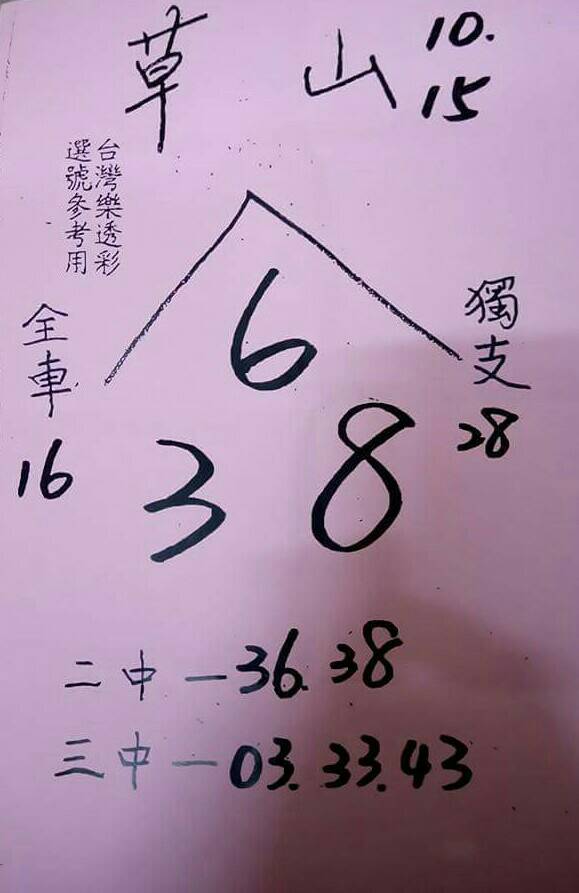 草山 10.
15
台灣樂透彩
選號參考用
全車
16
獨支
28
6
3 8
二中-36.38
三中-03.33.43